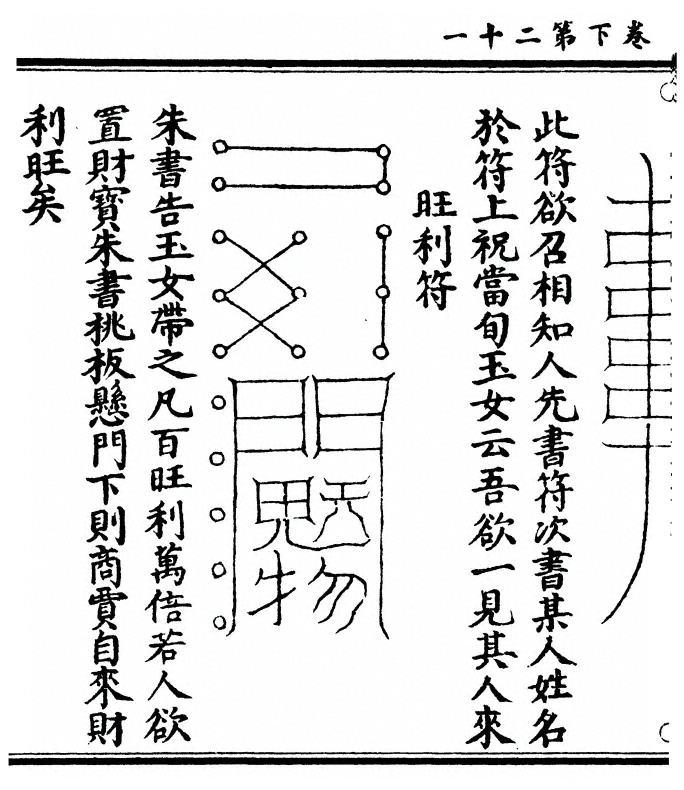 卷下第二十一
此符欲召相知人先書符次書某人姓名
於符上祝當旬玉女云吾欲一見其人來
旺利符
朱書告玉女帶之凡百旺利萬倍若人欲
置財寶朱書桃板懸門下則商賈自來財
利旺矣